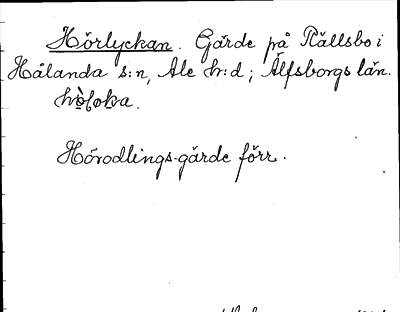 Hörlyckan. Gärde på Rällsbo i
Hålanda s:n, Ale h:d; Älfsborgs län.
Hörodlings-gärde förr.